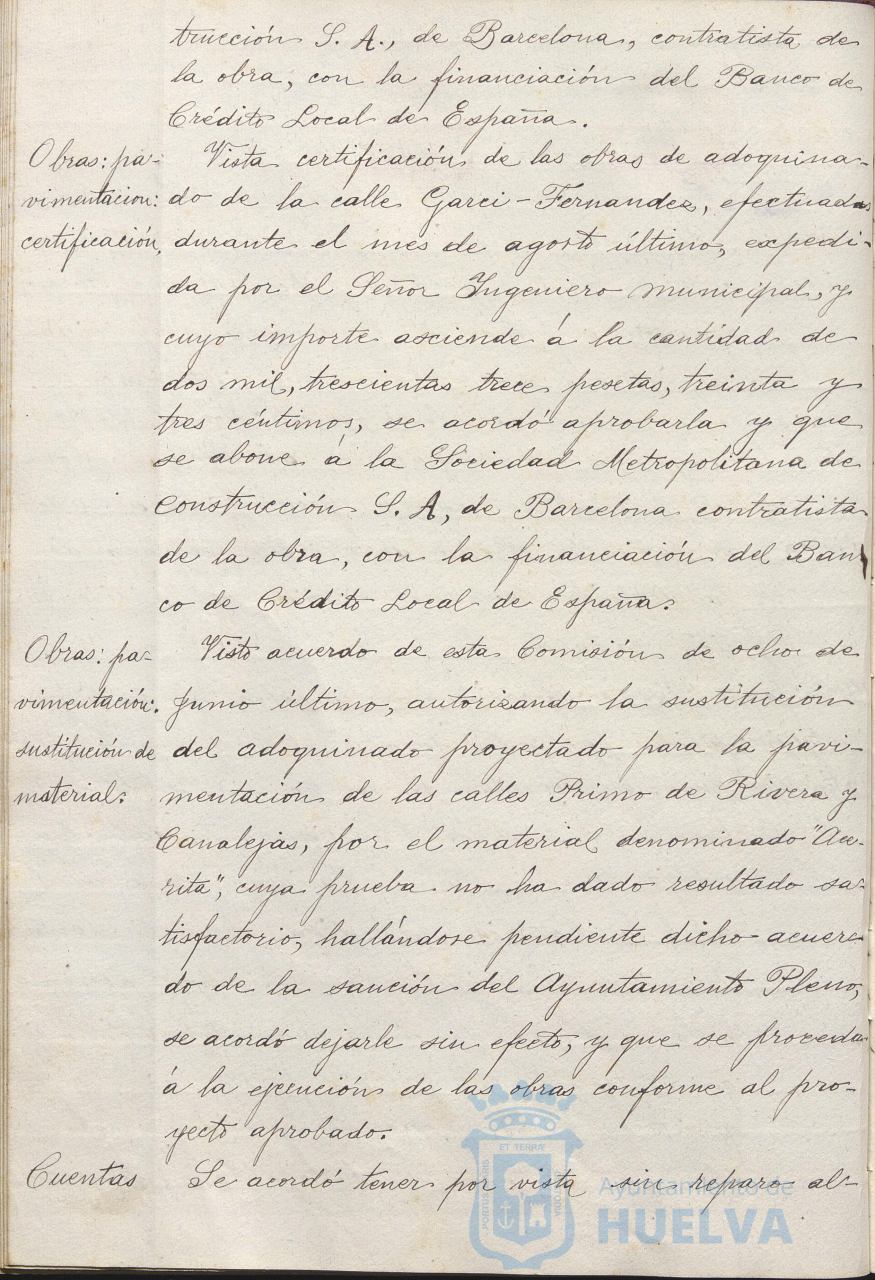 trucción S. A., de Barcelona, contratista de
la obra, con la financiación del Banco de
Crédito Local de España.
Obras: pa-
vimentacion:
certificación,
Vista certificación de las obras de adoquina-
do de la calle Garci-Fernandez, efectuadas
durante el mes de agosto último, expedi-
da por el Señor Ingeniero municipal, y
cuyo importe asciende á la cantidad de
dos mil, trescientas trece pesetas, treinta y
tres céntimos, se acordó aprobarla y que
se abone á la Sociedad Metropolitana de
Construcción S. A, de Barcelona contratista
de la obra, con la financiación del Ban
co de Crédito Local de España.
Obras: pa-
vimentación:
sustitución de
material:
Visto acuerdo de esta Comisión de ocho de
Junio último, autorizando la sustitución
del adoquinado proyectado para la pavi-
mentación de las calles Primo de Rivera y
Canalejas, por el material denominado "Ace-
rita", cuya prueba no ha dado resultado sa-
tisfactorio, hallándose pendiente dicho acuer-
do de la sanción del Ayuntamiento Pleno,
se acordó dejarle sin efecto, y que se proceda
á la ejecución de las obras conforme al pro-
yecto aprobado.
Cuentas
Se acordó tener por vista sin reparo al-
ET TERRÆ
PORTUS MARIS
CUSTODIA
Ayuntamiento de
HUELVA